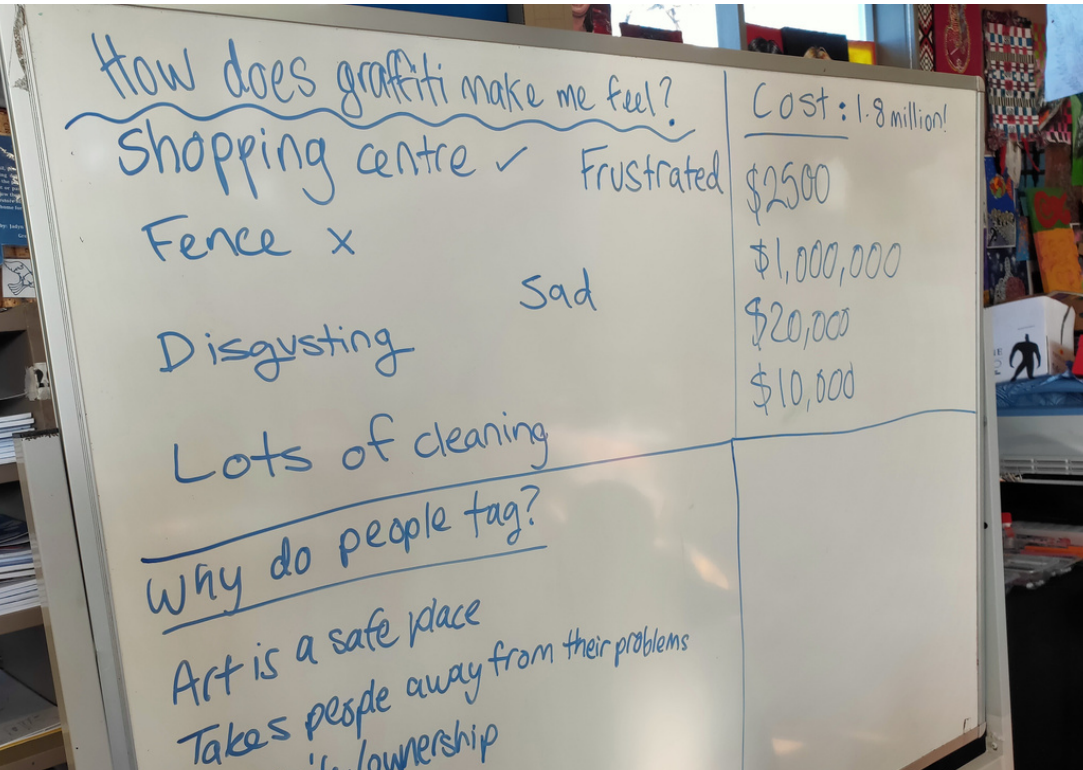 How does graffiti make me feel?
Shopping centre ✓ Frustrated
Fence x
Sad
Disgusting
Lots of cleaning
Why do people tag?
Art is a safe place
Takes people away from their problems
/ownership
Cost: 1.8 million!
$2500
$1,000,000
$20,000
$10,000